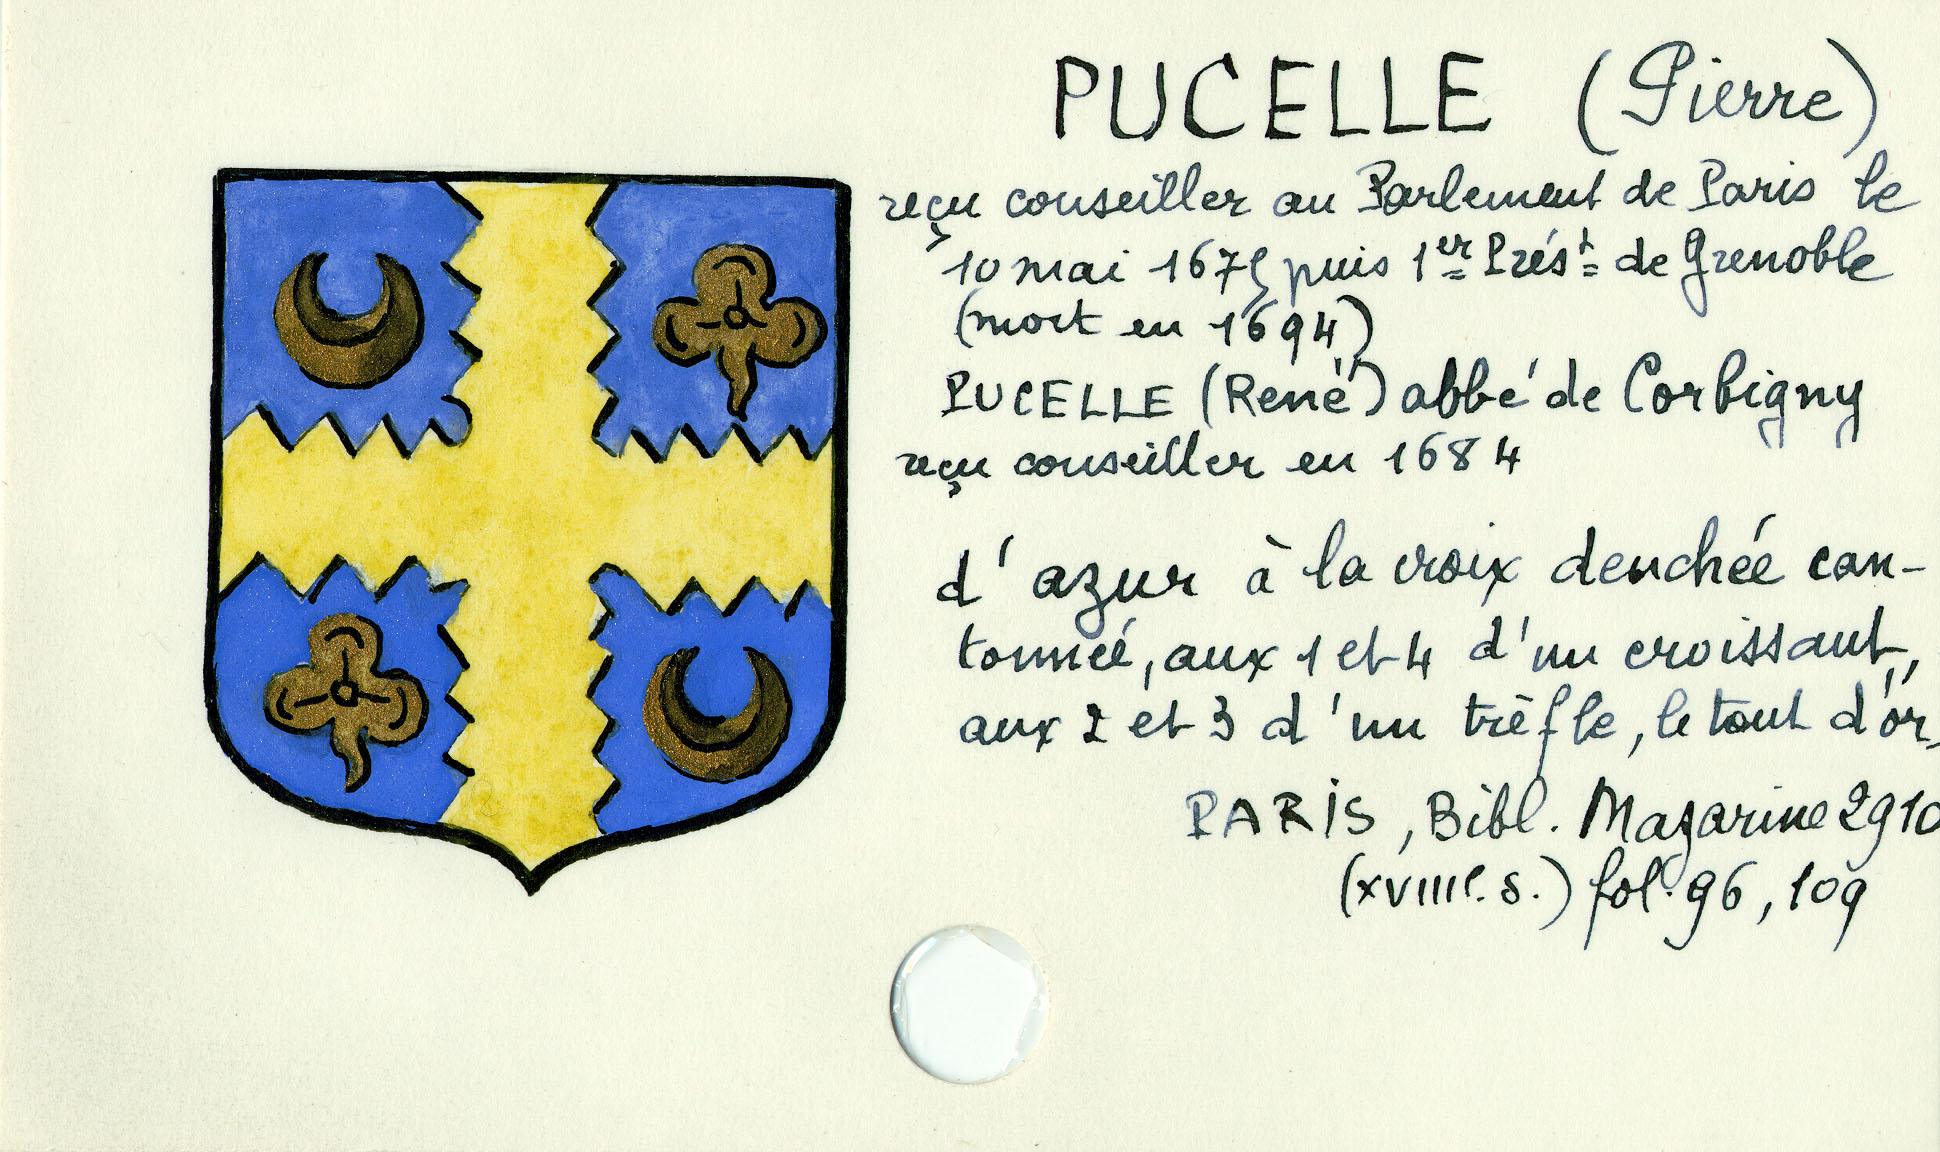 PUCELLE (Pierre)
reçu conseiller au Parlement de Paris le
10 mai 1675 puis 1er Prést de Grenoble
(mort en 1694)
PUCELLE (René) abbé de Corbigny
reçu conseiller en 1684
d'azur à la croix denchée can-
tonnée, aux 1 et 4 d'un croissant,
aux 2 et 3 d'un trèfle, le tout d'or.
PARIS, Bibl. Mazarine 2910
(XVIIIe. s.) fol. 96, 109